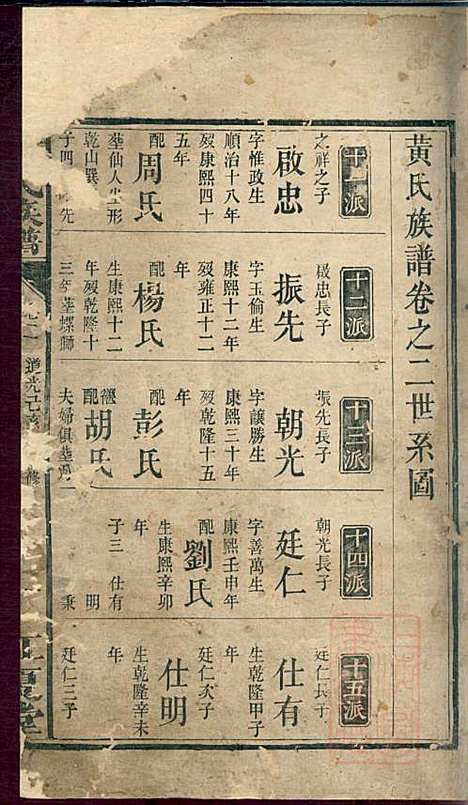 黃氏族譜卷之二世系圖
十一派
之祥之子
啟忠
字惟政生
順治十八年
歿康熙四十
五年
配
周氏
塟仙人坐形
乾山巽
子四 先
十二派
啟忠長子
振先
字玉倫生
康熙十二年
歿雍正十二
年
配
楊氏
生康熙十二
年歿乾隆十
三年塟螺獅
十三派
振先長子
朝光
字讓勝生
康熙三十年
歿乾隆十五
年
配
彭氏
配
胡氏
夫婦俱塟
十四派
朝光長子
廷仁
字善萬生
康熙壬申年
配
劉氏
生康熙辛卯
年
子三 仕有
明
秉
十五派
廷仁長子
仕有
生乾隆甲子
年
廷仁次子
仕明
生乾隆辛未
年
廷仁三子
氏族譜
道光
修
堂